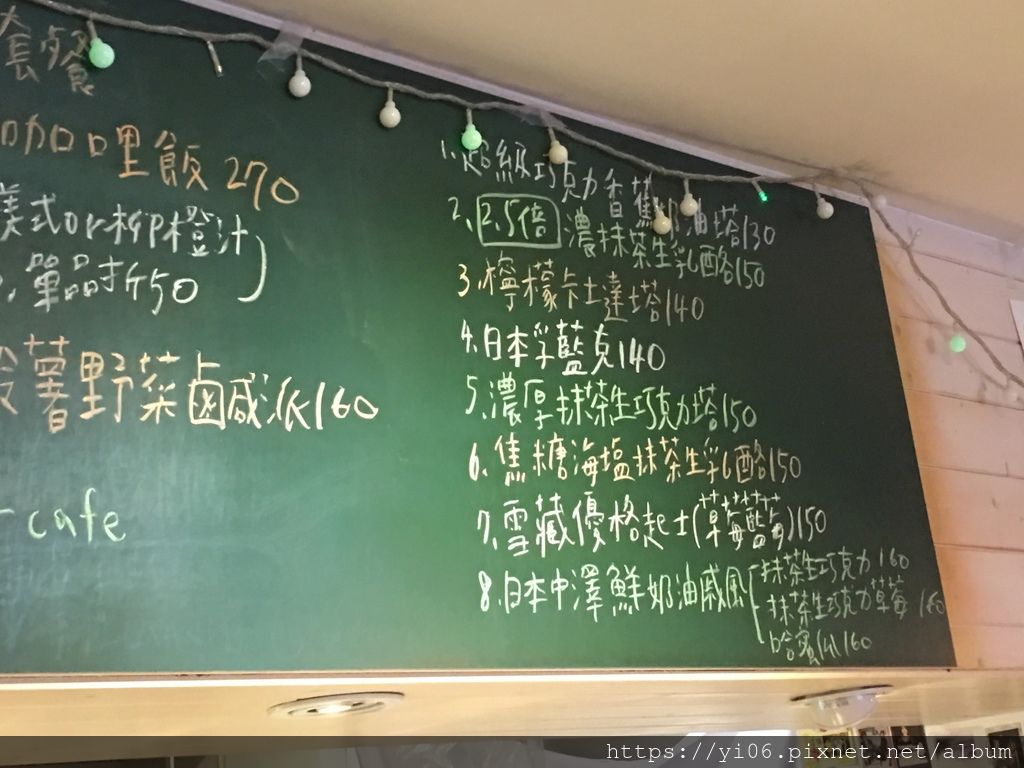 套餐
咖哩飯 270
美式or柳橙汁
單品折50
薯野菜鹵鹹派160
cafe
1.超級巧克力香蕉奶油塔130
2.2.5倍 濃抹茶生乳酪150
3.檸檬卡士達塔140
4.日本孚藍克140
5.濃厚抹茶生巧克力塔150
6.焦糖海塩抹茶生乳酪150
7.雪藏優格起士(草莓藍莓)150
8.日本中澤鮮奶油戚風
抹茶生巧克力 160
抹茶生巧克力草莓 160
哈蜜瓜160
https://yi06.pixnet.net/album